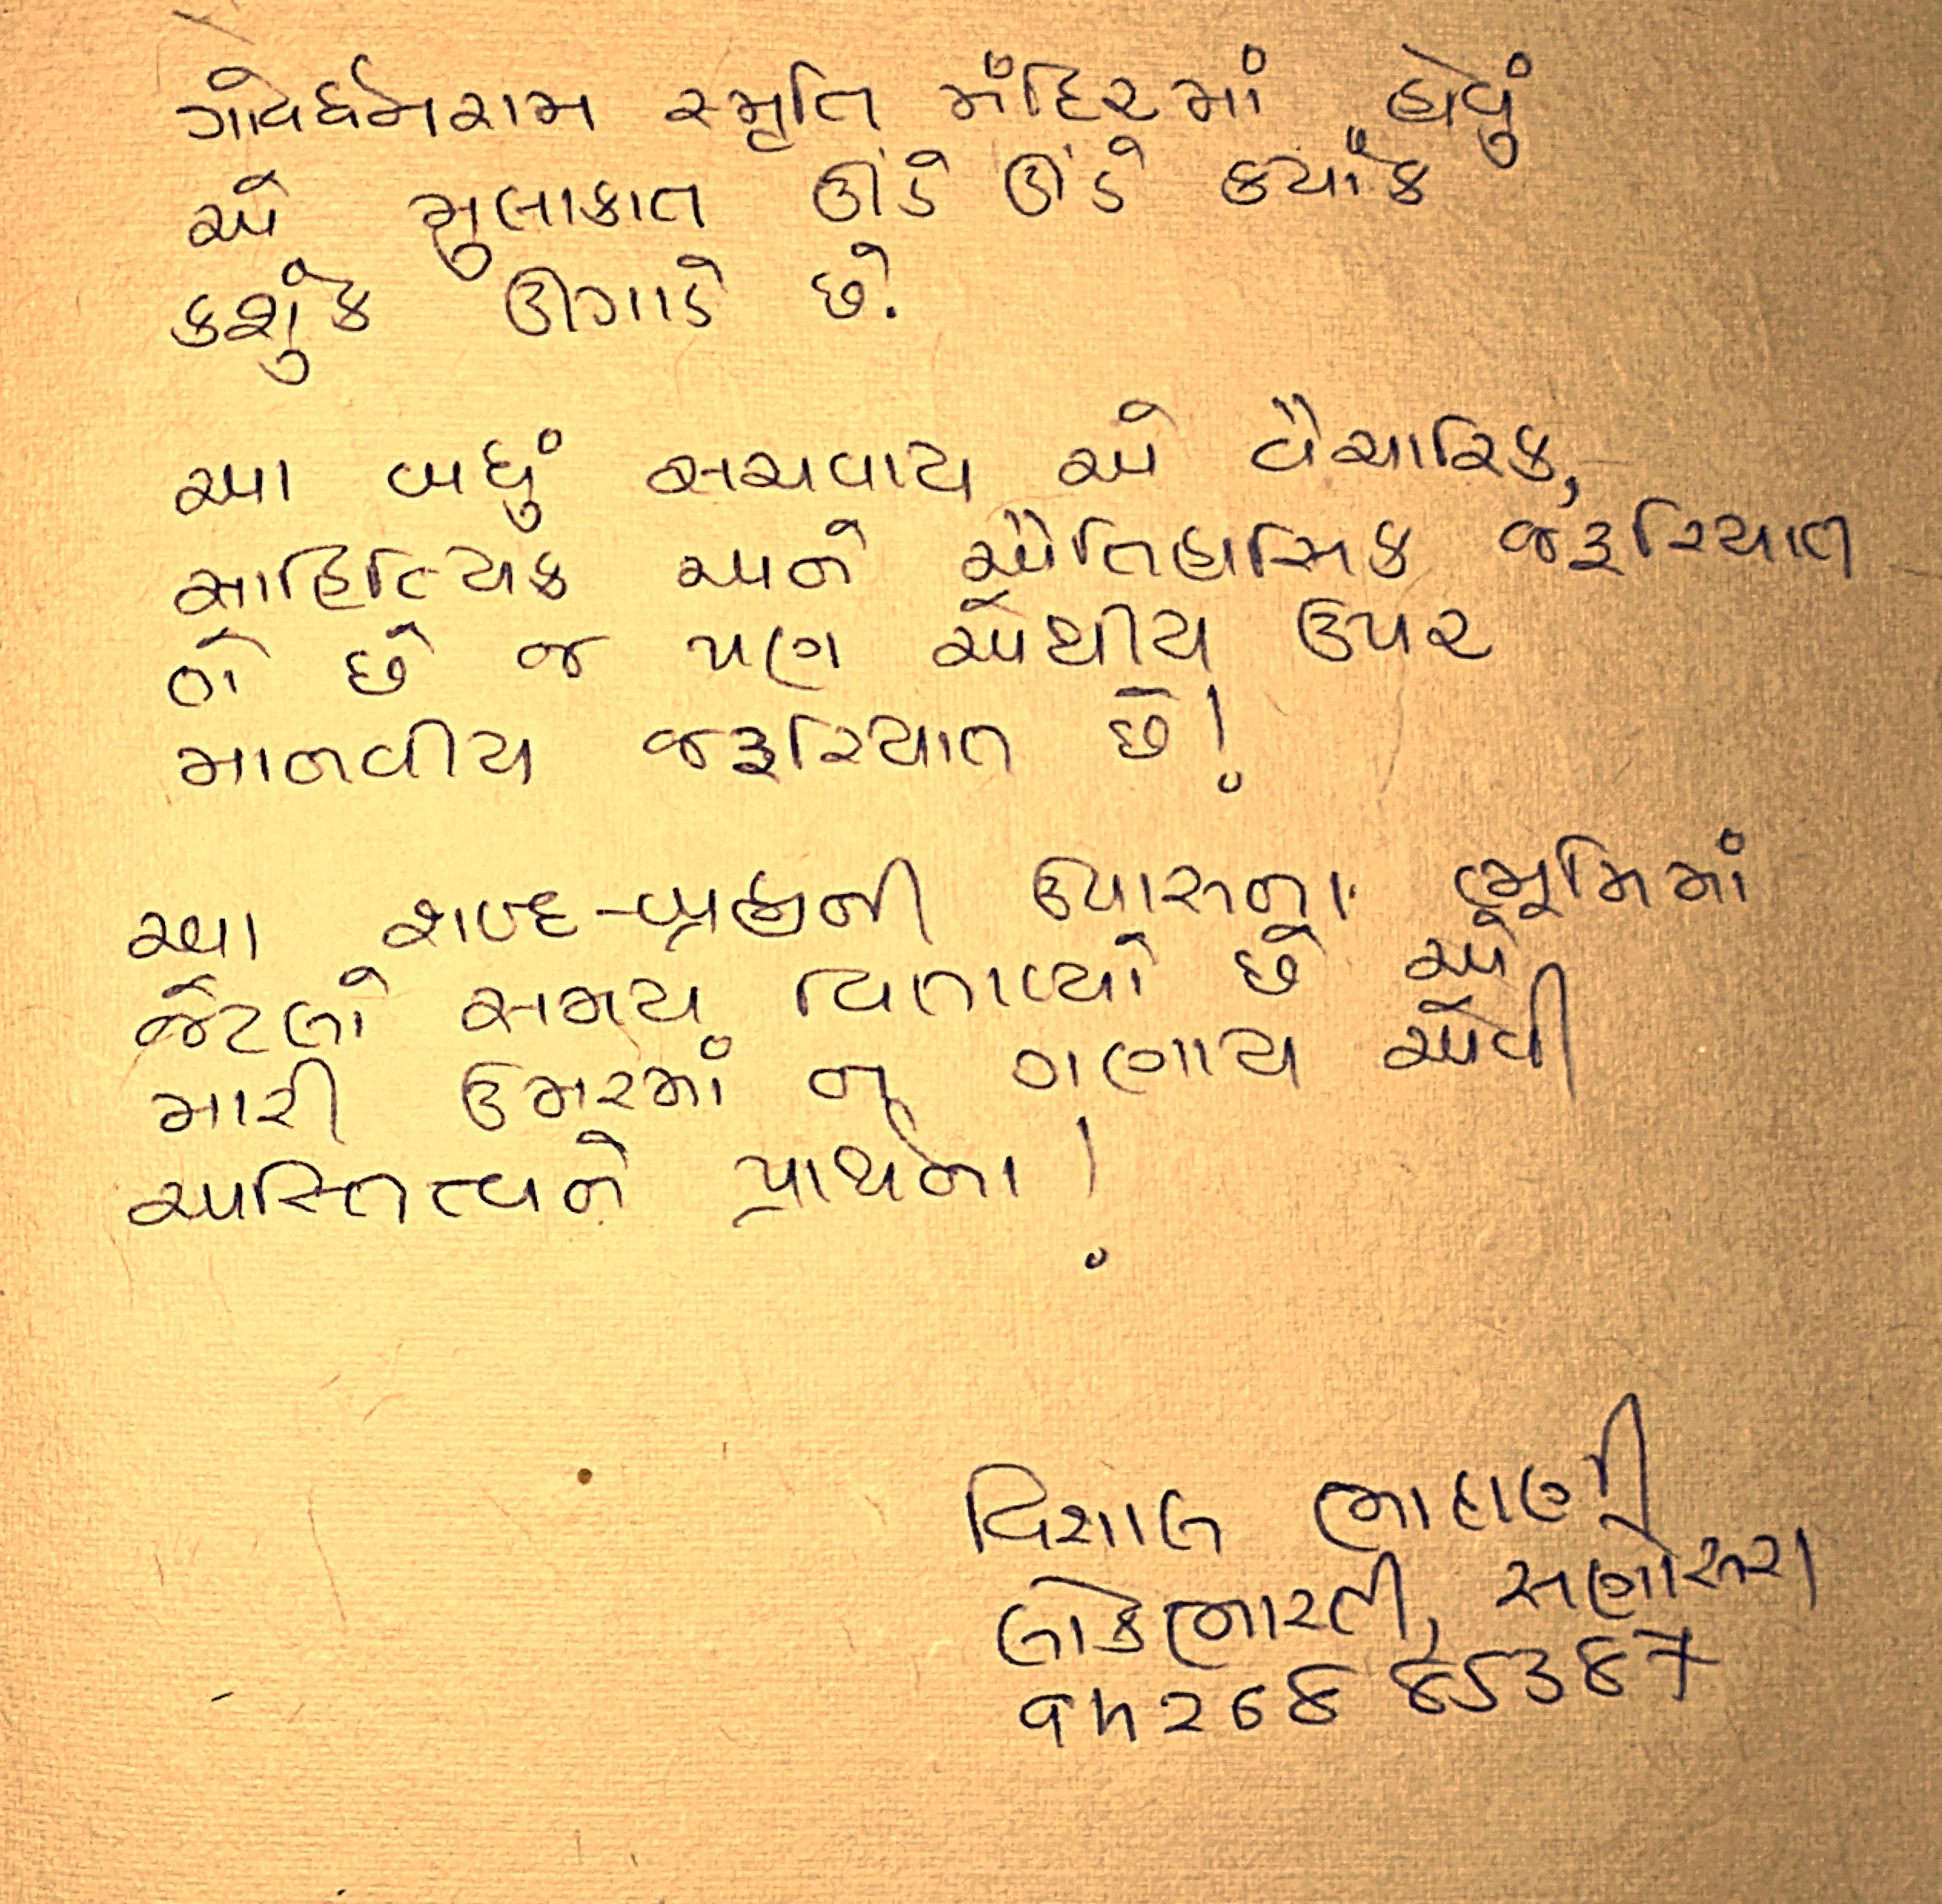 ગોવર્ધનરામ સ્મૃતિ મંદિરમાં હોવું
એ મુલાકાત ઊંડે ઊંડે ક્યાંક
કશુંક ઊગાડે છે.
આ બધું સચવાય એ વૈચારિક,
સાહિત્યિક અને ઐતિહાસિક જરૂરિયાત
તો છે જ પણ એથીય ઉપર
માનવીય જરૂરિયાત છે!
આ શબ્દ-બ્રહ્મની ઉપાસના ભૂમિમાં
જેટલો સમય વિતાવ્યો છે એ
મારી ઉંમરમાં ન ગણાય એવી
અસ્તિત્વને પ્રાર્થના!
વિશાલ ભાદાણી
લોકભારતી, સણોસરા